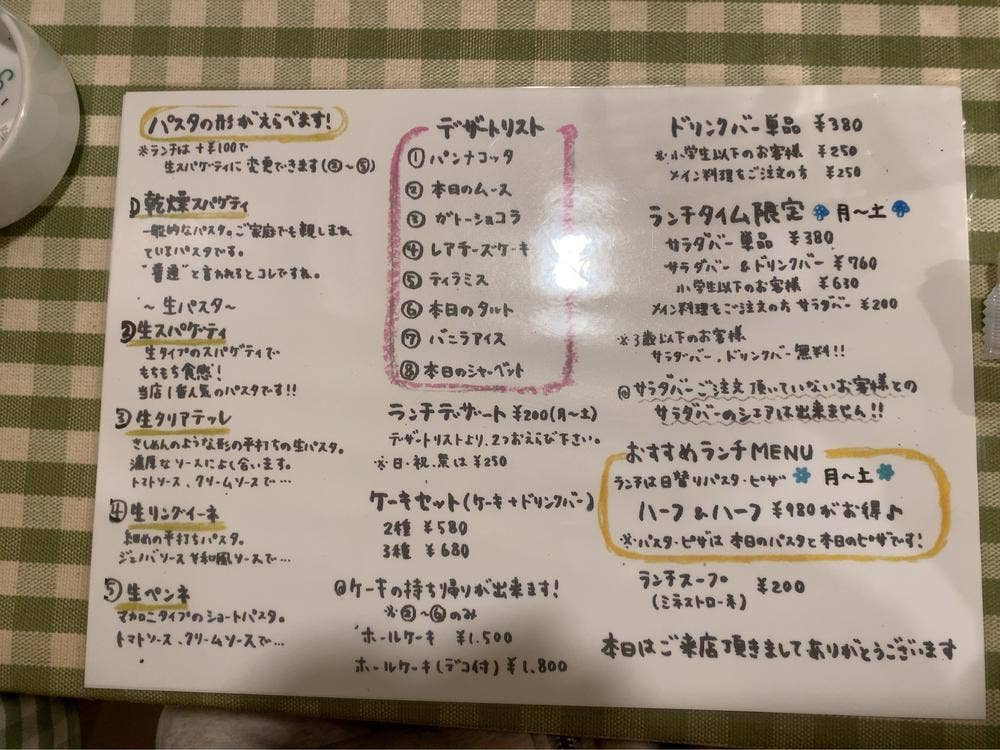 パスタの形がえらべます!
※ランチは+¥100で
生スパゲティに変更できます(②~⑤)
①乾燥スパゲティ
一般的なパスタ。ご家庭でも親しまれ
ているパスタです。
"普通"と言われるとコレですね。
~生パスタ~
②生スパゲティ
生タイプのスパゲティで
もちもち食感!
当店1番人気のパスタです!!
③生タリアテッレ
きしめんのような形の平打ちの生パスタ。
濃厚なソースによく合います。
トマトソース、クリームソースで…
④生リングイーネ
細めの平打ちパスタ。
ジェノバソースや和風ソースで…
⑤生ペンネ
マカロニタイプのショートパスタ。
トマトソース、クリームソースで…
デザートリスト
①パンナコッタ
②本日のムース
③ガトーショコラ
④レアチーズケーキ
⑤ティラミス
⑥本日のタルト
⑦バニラアイス
⑧本日のシャーベット
ランチデザート ¥200(月~土)
デザートリストより、2つおえらび下さい。
※日・祝、夜は¥250
ケーキセット(ケーキ+ドリンクバー)
2種 ¥580
3種 ¥680
@ケーキの持ち帰りが出来ます!
※②~⑥のみ
ホールケーキ ¥1.500
ホールケーキ(デコ付)¥1.800
ドリンクバー単品 ¥380
※小学生以下のお客様 ¥250
メイン料理をご注文の方 ¥250
ランチタイム限定 月~土
サラダバー単品 ¥380
サラダバー&ドリンクバー ¥760
小学生以下のお客様 ¥630
メイン料理をご注文の方 サラダバー ¥200
※3歳以下のお客様
サラダバー、ドリンクバー無料!!
@サラダバーご注文頂いていないお客様との
サラダバーのシェアは出来ません!!
おすすめランチMENU
ランチは日替りパスタ・ピザ 月~土
ハーフ&ハーフ ¥980がお得♪
※パスタ・ピザは本日のパスタと本日のピザです!
ランチスープ ¥200
(ミネストローネ)
本日はご来店頂きましてありがとうございます